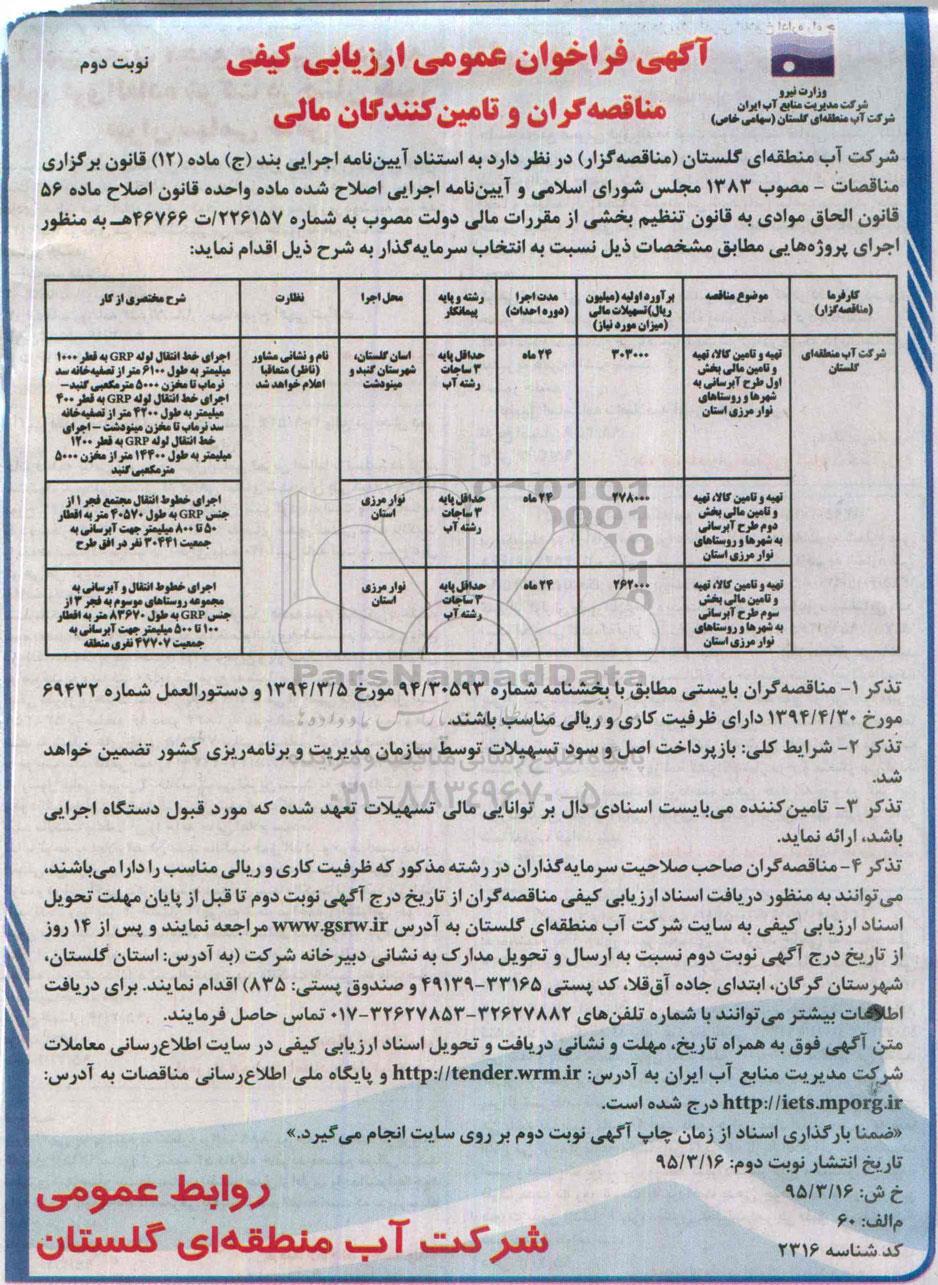 نوبت دوم
وزارت نیرو
شرکت مدیریت منابع آب ایران
شرکت آب منطقه‌ای گلستان (سهامی خاص)
آگهی فراخوان عمومی ارزیابی کیفی
مناقصه‌گران و تامین‌کنندگان مالی
شرکت آب منطقه‌ای گلستان (مناقصه‌گزار) در نظر دارد به استناد آیین‌نامه اجرایی بند (ج) ماده (۱۲) قانون برگزاری
مناقصات – مصوب ۱۳۸۳ مجلس شورای اسلامی و آیین‌نامه اجرایی اصلاح شده ماده واحده قانون اصلاح ماده ۵۶
قانون الحاق موادی به قانون تنظیم بخشی از مقررات مالی دولت مصوب به شماره ۲۲۶۱۵۷/ت ۴۶۷۶۶هـ به منظور
اجرای پروژه‌هایی مطابق مشخصات ذیل نسبت به انتخاب سرمایه‌گذار به شرح ذیل اقدام نماید:
کارفرما (مناقصه‌گزار) موضوع مناقصه برآورد اولیه (میلیون ریال)تسهیلات مالی (میزان مورد نیاز) مدت اجرا (دوره احداث) رشته و پایه پیمانکار محل اجرا نظارت شرح مختصری از کار
شرکت آب منطقه‌ای گلستان
تهیه و تامین کالا، تهیه
و تامین مالی بخش
اول طرح آبرسانی به
شهرها و روستاهای
نوار مرزی استان
۳۰۳۰۰۰
۲۴ ماه
حداقل پایه
۳ ساجات
رشته آب
اسان گلستان،
شهرستان گنبد و
مینودشت
نام و نشانی مشاور
(ناظر) متعاقبا
اعلام خواهد شد
اجرای خط انتقال لوله GRP به قطر ۱۰۰۰
میلیمتر به طول ۶۱۰۰ متر از تصفیه‌خانه سد
نرماب تا مخزن ۵۰۰۰ مترمکعبی گنبد–
اجرای خط انتقال لوله GRP به قطر ۴۰۰
میلیمتر به طول ۴۲۰۰ متر از تصفیه‌خانه
سد نرماب تا مخزن مینودشت – اجرای
خط انتقال لوله GRP به قطر ۱۲۰۰
میلیمتر به طول ۱۴۴۰۰ متر از مخزن ۵۰۰۰
مترمکعبی گنبد
تهیه و تامین کالا، تهیه
و تامین مالی بخش
دوم طرح آبرسانی
به شهرها و روستاهای
نوار مرزی استان
۲۷۸۰۰۰
۲۴ ماه
حداقل پایه
۳ ساجات
رشته آب
نوار مرزی
استان
اجرای خطوط انتقال مجتمع فجر ۱ از
جنس GRP به طول ۴۰۵۷۰ متر به اقطار
۵۰ تا ۸۰۰ میلیمتر جهت آبرسانی به
جمعیت ۳۰۴۴۱ نفر در افق طرح
تهیه و تامین کالا، تهیه
و تامین مالی بخش
سوم طرح آبرسانی
به شهرها و روستاهای
نوار مرزی استان
۲۶۲۰۰۰
۲۴ ماه
حداقل پایه
۳ ساجات
رشته آب
نوار مرزی
استان
اجرای خطوط انتقال و آبرسانی به
مجموعه روستاهای موسوم به فجر ۳ از
جنس GRP به طول ۸۳۶۷۰ متر به اقطار
۱۰۰ تا ۵۰۰ میلیمتر جهت آبرسانی به
جمعیت ۴۷۷۰۷ نفری منطقه
ParsNamadData
پایگاه اطلاع رسانی مناقصه و مزایده
۰۲۱-۸۸۳۴۹۶۷۰-۵
تذکر ۱– مناقصه‌گران بایستی مطابق با بخشنامه شماره ۹۴/۳۰۵۹۳ مورخ ۱۳۹۴/۳/۵ و دستورالعمل شماره ۶۹۴۳۲
مورخ ۱۳۹۴/۴/۳۰ دارای ظرفیت کاری و ریالی مناسب باشند.
تذکر ۲– شرایط کلی: بازپرداخت اصل و سود تسهیلات توسط سازمان مدیریت و برنامه‌ریزی کشور تضمین خواهد
شد.
تذکر ۳– تامین‌کننده می‌بایست اسنادی دال بر توانایی مالی تسهیلات تعهد شده که مورد قبول دستگاه اجرایی
باشد، ارائه نماید.
تذکر ۴– مناقصه‌گران صاحب صلاحیت سرمایه‌گذاران در رشته مذکور که ظرفیت کاری و ریالی مناسب را دارا می‌باشند،
می‌توانند به منظور دریافت اسناد ارزیابی کیفی مناقصه‌گران از تاریخ درج آگهی نوبت دوم تا قبل از پایان مهلت تحویل
اسناد ارزیابی کیفی به سایت شرکت آب منطقه‌ای گلستان به آدرس www.gsrw.ir مراجعه نمایند و پس از ۱۴ روز
از تاریخ درج آگهی نوبت دوم نسبت به ارسال و تحویل مدارک به نشانی دبیرخانه شرکت (به آدرس: استان گلستان،
شهرستان گرگان، ابتدای جاده آق‌قلا، کد پستی ۳۳۱۶۵–۴۹۱۳۹ و صندوق پستی: ۸۳۵) اقدام نمایند. برای دریافت
اطلاعات بیشتر می‌توانند با شماره تلفن‌های ۳۲۶۲۷۸۸۲–۳۲۶۲۷۸۵۳–۰۱۷ تماس حاصل فرمایند.
متن آگهی فوق به همراه تاریخ، مهلت و نشانی دریافت و تحویل اسناد ارزیابی کیفی در سایت اطلاع‌رسانی معاملات
شرکت مدیریت منابع آب ایران به آدرس: http://tender.wrm.ir و پایگاه ملی اطلاع‌رسانی مناقصات به آدرس:
http://iets.mporg.ir درج شده است.
«ضمنا بارگذاری اسناد از زمان چاپ آگهی نوبت دوم بر روی سایت انجام می‌گیرد.»
تاریخ انتشار نوبت دوم: ۹۵/۳/۱۶
خ ش: ۹۵/۳/۱۶
م‌الف: ۶۰
کد شناسه ۲۳۱۶
روابط عمومی
شرکت آب منطقه‌ای گلستان